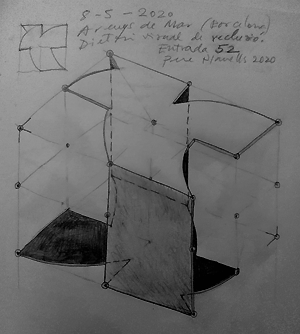 8-5-2020
Arenys de Mar (Barcelona)
Dietari visual de reclusió.
Entrada 52
pere Planells 2020